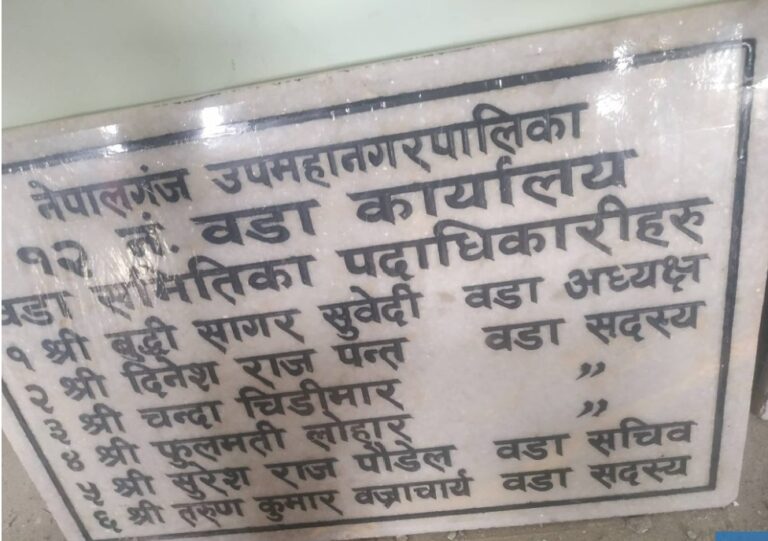 नेपालगंज उपमहानगरपालिका
१२ नं. वडा कार्यालय
वडा समितिका पदाधिकारीहरु
१ श्री बुद्धी सागर सुवेदी वडा अध्यक्ष
२ श्री दिनेश राज पन्त वडा सदस्य
३ श्री चन्दा चिडीमार ”
४ श्री फुलमती लोहार ”
५ श्री सुरेश राज पौडेल वडा सचिव
६ श्री तरुण कुमार वज्राचार्य वडा सदस्य